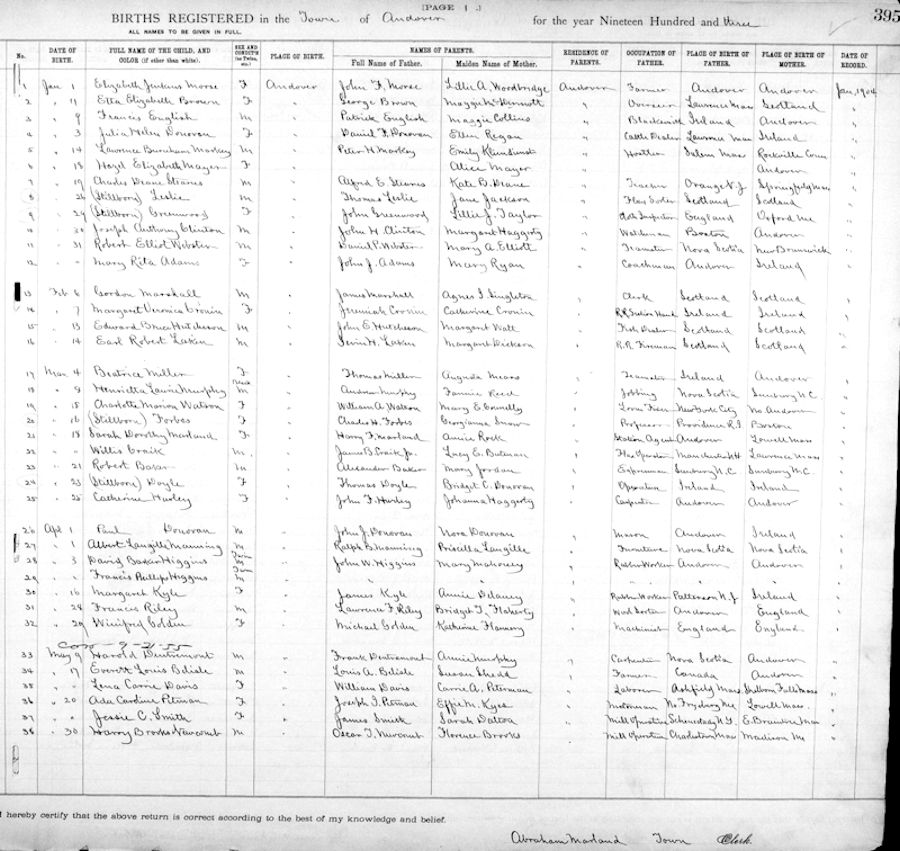 [PAGE 1.]
395
BIRTHS REGISTERED in the Town of Andover for the year Nineteen Hundred and three
ALL NAMES TO BE GIVEN IN FULL.
No. DATE OF BIRTH. FULL NAME OF THE CHILD, AND COLOR (if other than white). SEX AND CONDIT'N (as Twins, etc.) PLACE OF BIRTH. NAMES OF PARENTS. Full Name of Father. Maiden Name of Mother. RESIDENCE OF PARENTS. OCCUPATION OF FATHER. PLACE OF BIRTH OF FATHER. PLACE OF BIRTH OF MOTHER. DATE OF RECORD.
1 Jan 1 Elizabeth Morse F Andover John F. Morse Lillie A. Woodbridge Andover Farmer Andover Andover Jan, 1904
2 " 11 Etta Elizabeth Brown F George Brown Maggie McDermott Overseer Lawrence Mass Scotland
3 " 9 Francis English m Patrick English Maggie Collins Blacksmith Ireland Andover
4 " 3 Julia Helen Donovan F Daniel F. Donovan Ellen Regan Cattle Dealer Lawrence Mass Ireland
5 " 14 Lawrence Burnham Markey m Peter H. Markey Emily Hostler Salem Mass Rockville Conn
6 " 18 Hazel Elizabeth Mayer F Alice Mayer Andover
7 " 19 Charles Deane Stearns m Alfred E. Stearns Kate B. Deane Teacher Orange N.J. Springfield Mass
8 " 26 (Stillborn) Leslie m Thomas Leslie Jane Jackson Flax Sorter Scotland Scotland
9 " 29 (Stillborn) Greenwood F John Greenwood Lillie J. Taylor Cloth Inspector England Oxford Me
10 " 20 Joseph Anthony Clinton m John H. Clinton Margaret Haggerty Watchman Boston Andover
11 " 31 Robert Elliot Webster m Daniel P. Webster Mary A. Elliott Teamster Nova Scotia New Brunswick
12 " " Mary Rita Adams F John J. Adams Mary Ryan Coachman Andover Ireland
13 Feb 6 Gordon Marshall m James Marshall Agnes S. Singleton Clerk Scotland Scotland
14 " 7 Margaret Veronica Cronin F Jeremiah Cronin Catherine Cronin R.R. Section Hand Ireland Ireland
15 " 13 Edward Bruce Hutcheson m John E. Hutcheson Margaret Watt Fish Dealer Scotland Scotland
16 " 14 Earl Robert Laken m Irvin H. Laken Margaret Dickson R.R. Fireman Scotland Scotland
17 Mar 4 Beatrice Miller F Thomas Miller Augusta Mears Teamster Ireland Andover
18 " 9 Henrietta Laurie Murphy Andrew Murphy Fannie Reed Jobbing Nova Scotia Sunbury N.C.
19 " 15 Charlotte Marion Watson F William A. Watson Mary E. Connelly New York City No Andover
20 " 16 (Stillborn) Forbes F Charles H. Forbes Georgianna Professor Providence R.I. Boston
21 " 18 Sarah Dorothy Marland F Harry F. Marland Annie Rock Station Agent Andover Lowell Mass
22 " " Willis Craik m. James B. Craik Jr. Lucy E. Bateman Flax Operative Manchester N.H. Lawrence Mass
23 " 21 Robert Baker m Alexander Baker Mary Jordan Expressman Sunbury N.C. Sunbury N.C.
24 " 23 (Stillborn) Doyle F Thomas Doyle Bridget C. Donovan Operative Ireland Ireland
25 " 25 Catherine Hurley F John F. Hurley Johanna Haggerty Carpenter Andover Andover
26 Apl 1 Paul Donovan m John J. Donovan Nora Donovan Mason Andover Ireland
27 " 1 Albert Langille Manning m Ralph B. Manning Priscilla Langille Furniture Nova Scotia Nova Scotia
28 " 3 David Baker Higgins Twin m John W. Higgins Mary Mahoney Rubber Worker Andover Andover
29 " " Francis Phillips Higgins Twin m " " " "
30 " 16 Margaret Kyle F James Kyle Annie Delaney Rubber Worker Patterson N.J. Ireland
31 " 28 Francis Riley m Lawrence F. Riley Bridget T. Flaherty Wool Sorter Andover England
32 " 29 Winifred Golden F Michael Golden Katherine Flannery Machinist England England
Corr-9-21-55
33 May 9 Harold Dentremont m Frank Dentremont Annie Murphy Carpenter Nova Scotia Andover
34 " 17 Everett Louis Belisle m Louis A. Belisle Susan Shedd Farmer Canada Andover
35 " " Lena Carrie Davis F William Davis Carrie A. Peterman Laborer Ashfield Mass Shelburn Falls Mass
36 " 20 Ada Caroline Pitman F Joseph T. Pitman Effie M. Kyes Motorman N. Fryeburg Me Lowell Mass.
37 " " Jessie C. Smith F James Smith Sarah Dalton Mill Operative Schenectady N.Y. E. Braintree Mass
38 " 30 Harry Brooks Newcomb m Oscar T. Newcomb Florence Brooks Mill Operative Charlestown Mass Madison Me
I hereby certify that the above return is correct according to the best of my knowledge and belief.
Abraham Marland Town Clerk